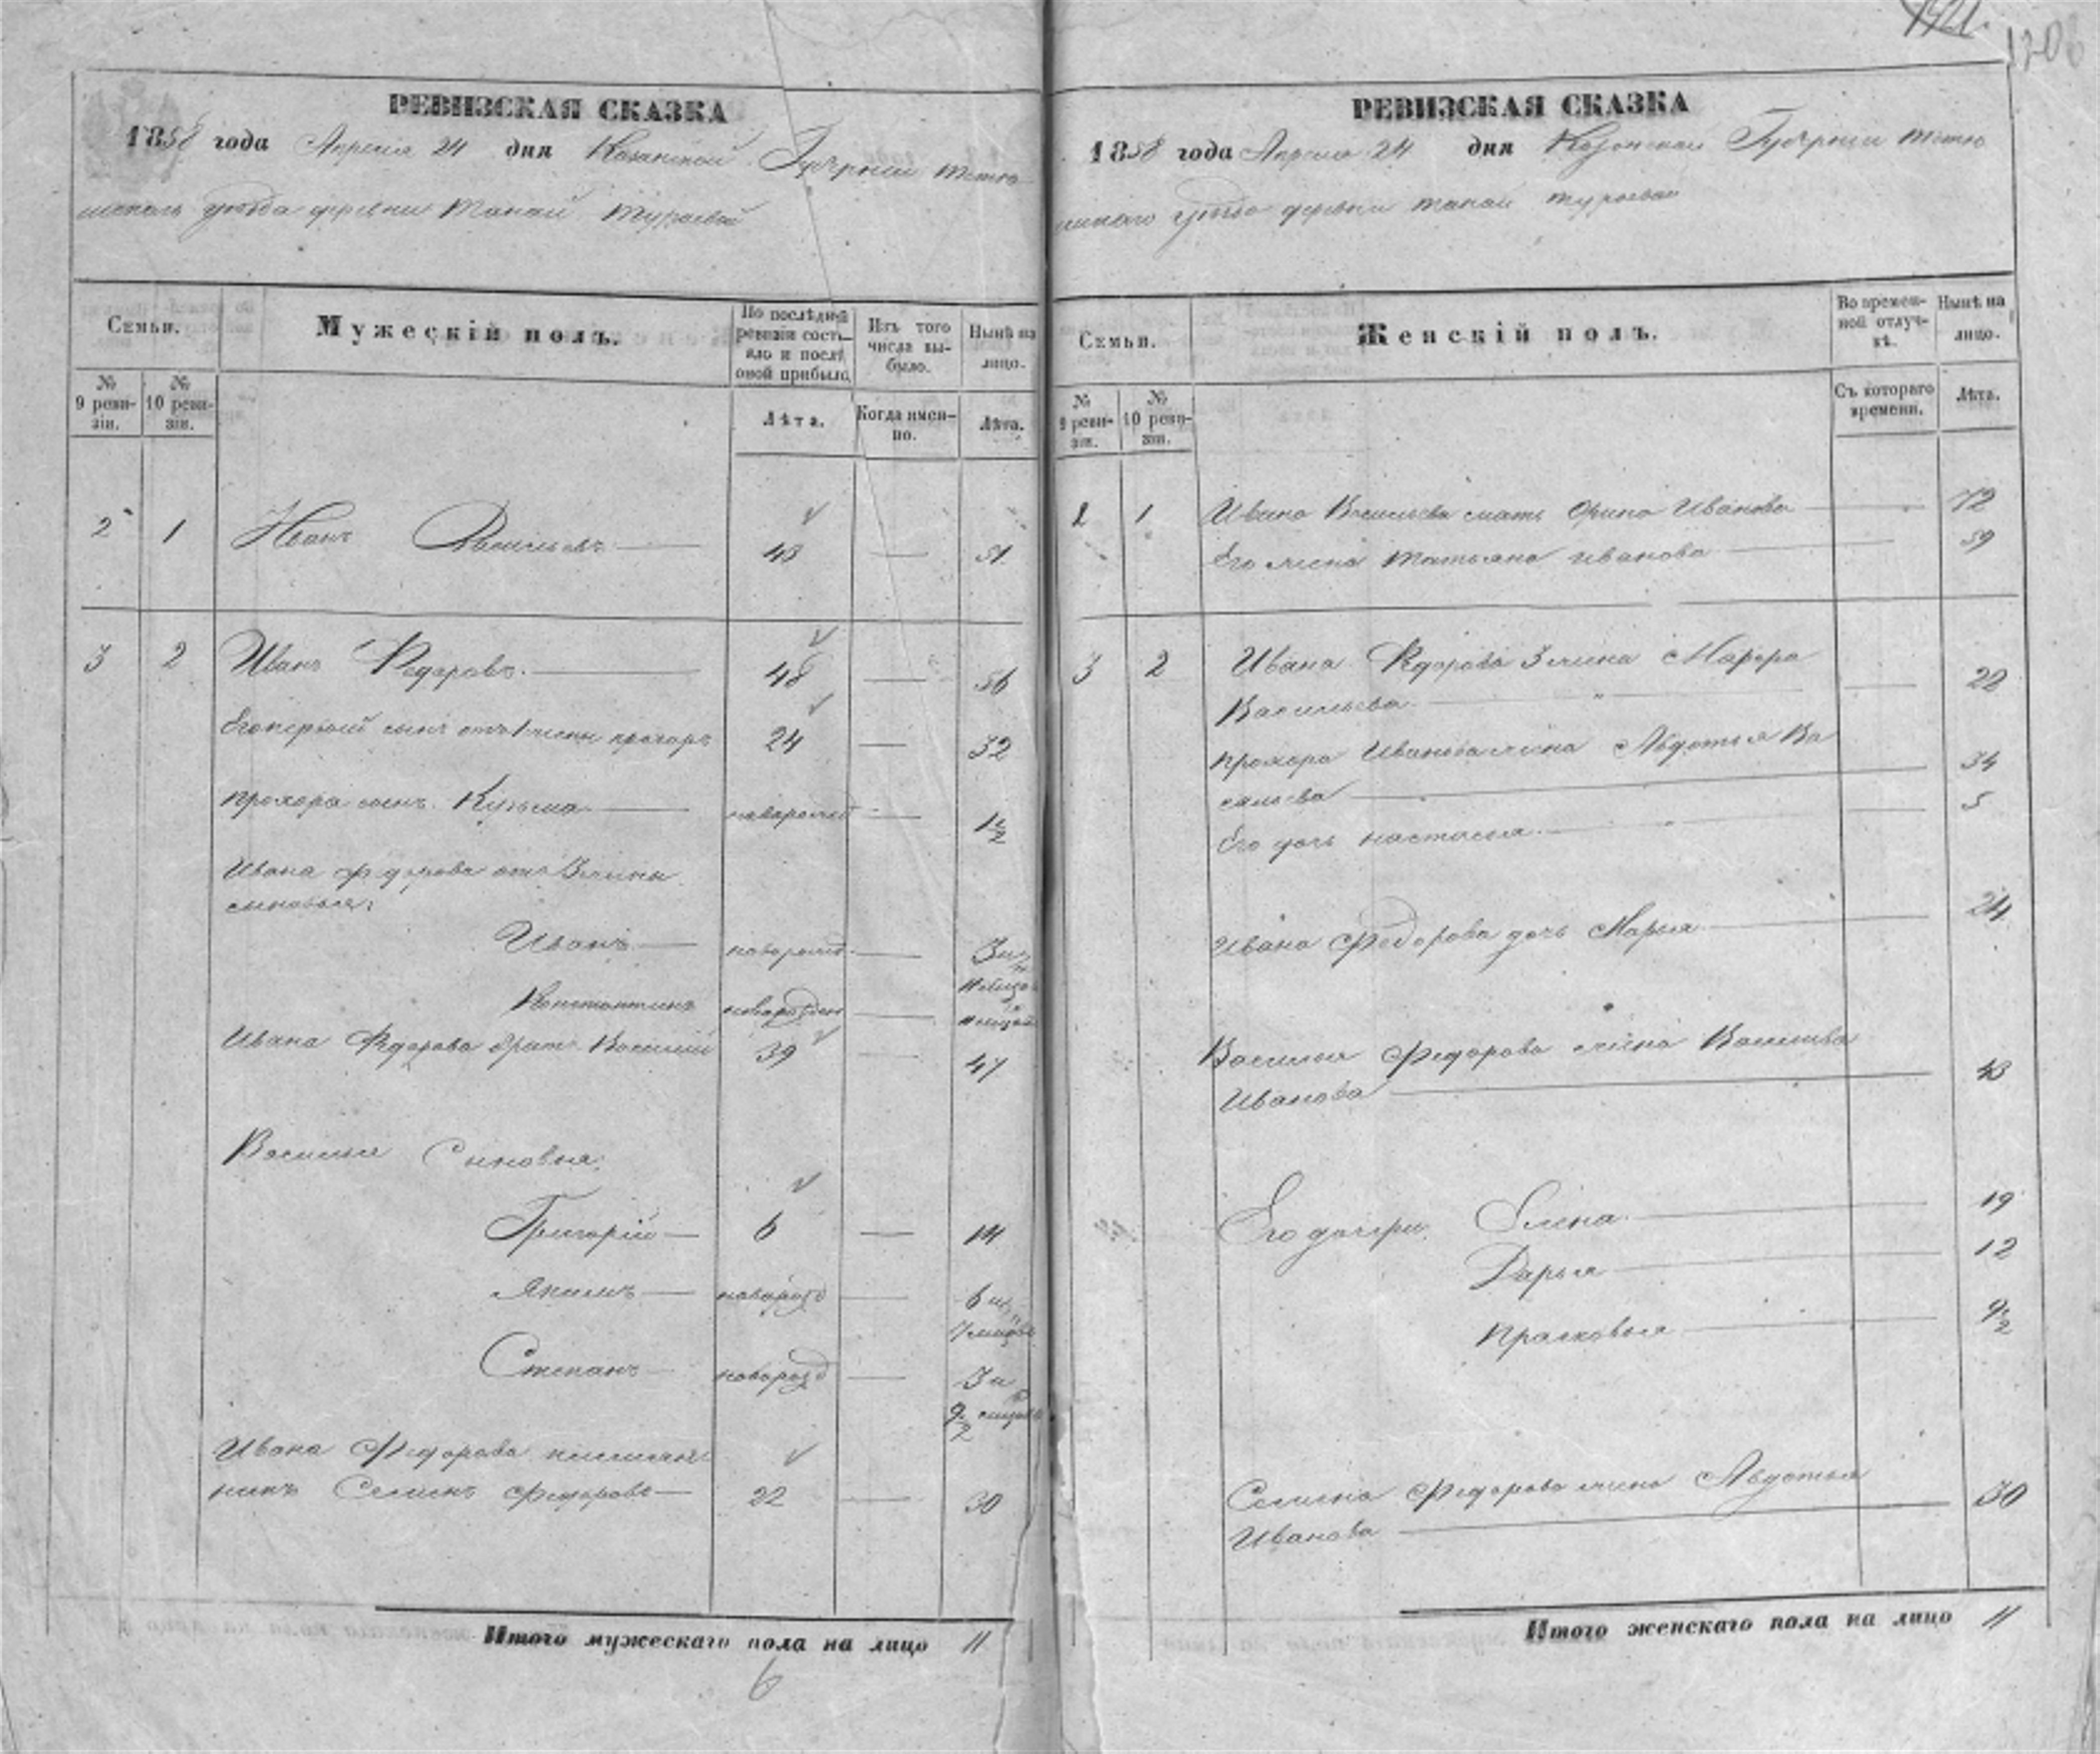 1421.
120
РЕВИЗСКАЯ СКАЗКА
1858 года Апреля 24 дня Казанской Губернии Тетю
шскаго уезда деревни Танай Тураевой
Семьи.
Мужескій полъ.
По послѣдней ревизіи состояло и послѣ оной прибыло.
Изъ того числа выбыло.
Нынѣ на лицо.
№ 9 ревизіи.
№ 10 ревизіи.
Лѣта.
Когда именно.
Лѣта.
2 1 Иванъ Васильевъ 43 51
3 2 Иванъ Федоровъ. 48 56
Его первый сынъ отъ 1 жены прохоръ 24 32
прохора сынъ Кузьма новорожд 1/2
Ивана федорова отъ 2 жены
сыновья:
Иванъ новорожд. 3 и
11 месяц
Константинъ новорожден 11 месяц
Ивана Федорова братъ Василий 39 47
Василья Сыновья:
Григорій 6 14
Якимъ новорозд 6 и
7 месяцов
Степанъ новорозд 3 и
9 1/2 месяцов
Ивана Федорова племян
никъ Семенъ Федоровъ 22 30
Итого мужескаго пола на лицо 11
6
РЕВИЗСКАЯ СКАЗКА
1858 года Апреля 24 дня Казанской Губернии Тетю
шскаго уезда деревни танай тураевой
Семьи.
Женскій полъ.
Во временной отлучкѣ.
Нынѣ на лицо.
№ 9 ревизіи.
№ 10 ревизіи.
Съ котораго времени.
Лѣта.
2 1 Ивана Васильева мать Орина Иванова 72
Его жена татьяна иванова 59
3 2 Ивана Федорова 2 жена Марфа
Васильева 22
прохора Иванова жена Авдотья Ва
сильева 34
Его дочь настасья. 5
Ивана Федорова дочь Марья 24
Василья Федорова жена Василиса
Иванова 43
Его дочери Елена 19
Дарья 12
прасковья 9 1/2
Семена Федорова жена Авдотья
Иванова 30
Итого женскаго пола на лицо 11